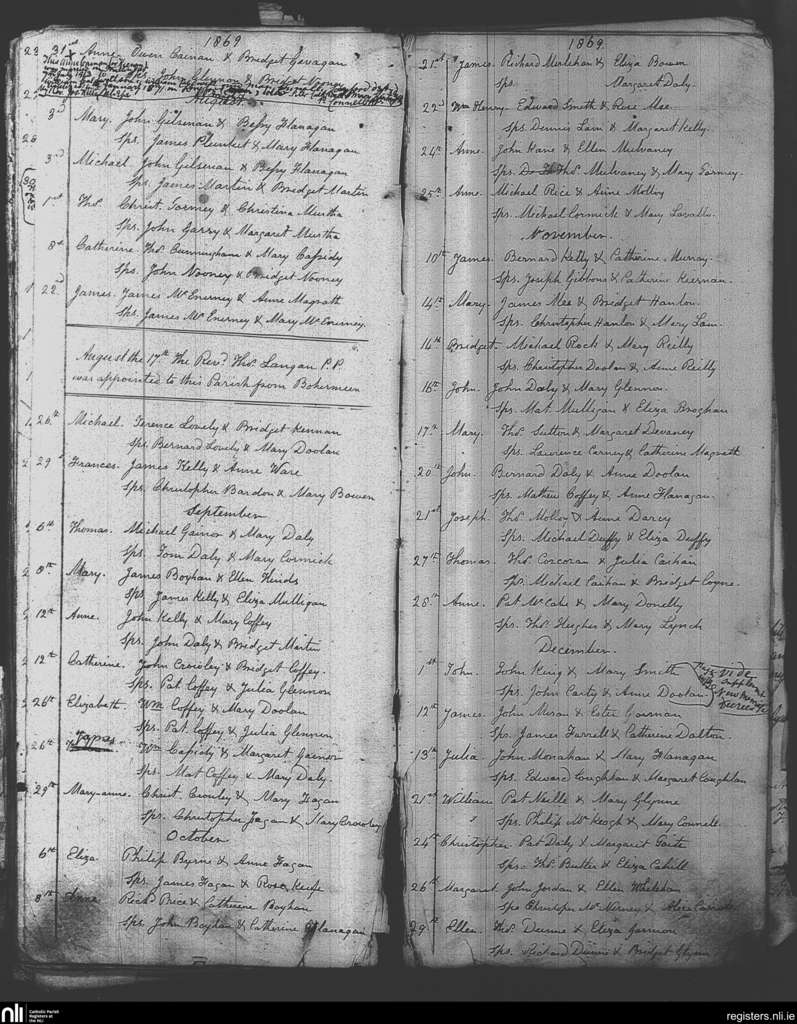 1869
31st Anne. Owen Caenan & Bridget Gavagan
John Glennon & Bridget Nooney
August
3d Mary. John Gilsenan & Bessy Flanagan
Sps. James Plunket & Mary Flanagan
3rd Michael. John Gilsenan & Bessy Flanagan
Sps. James Martin & Bridget Martin
1st Thos. Christ. Tormey & Christina Murtha
Sps. John Garry & Margaret Murtha
8th Catherine. Thos. Cunningham & Mary Cassidy
Sps. John Nooney & Bridget Nooney
22d James. James McEnerney & Anne Magrath
Sps. James McEnerney & Mary McEnerney.
August the 17th The Revd. Thos. Langan P.P.
was appointed to this Parish from Bohermeen
26th Michael. Terence Lovely & Bridget Kennan
Sps. Bernard Lovely & Mary Doolan
29 Frances. James Kelly & Anne Ware
Sps. Christopher Bardon & Mary Bowen
September
6th Thomas. Michael Gainor & Mary Daly
Sps. Tom Daly & Mary Cormick
8th Mary. James Boyhan & Ellen Hinds
Sps. James Kelly & Eliza Mulligan
12th Anne. John Kelly & Mary Coffey
Sps. John Daly & Bridget Martin
12th Catherine. John Crowley & Bridget Coffey.
Sps. Pat Coffey & Julia Glennon
26th Elizabeth. Wm Coffey & Mary Doolan
Sps. Pat Coffey & Julia Glennon
26th James Wm. Cassidy & Margaret Gainor
Sps. Mat Coffey & Mary Daly
29th Mary-anne. Christ. Crowley & Mary Fagan
Sps. Christopher Fagan & Mary Crowley
October
6th Eliza Philip Byrne & Anne Fagan
Sps. James Fagan & Rose Keefe
8th Anne Richd. Price & Catherine Boyhan
Sps. John Boyhan & Catherine Flanagan
1869
21st James Richard Merlehan & Eliza Bowen
Sps. Margaret Daly.
22d Wm Henry. Edward Smith & Rose Mee.
Sps. Dennis Lam & Margaret Kelly.
24th Anne. John Kane & Ellen Mulvaney
Sps. Thos. Mulvaney & Mary Tormey.
25th Anne. Michael Rice & Anne Molloy
Sps. Michael Cormick & Mary Lavelle.
November.
10th James. Bernard Kelly & Catherine Murray.
Sps. Joseph Gibbons & Catherine Keernan.
14th Mary. James Mee & Bridget Hanlon.
Sps. Christopher Hanlon & Mary Lam.
14th Bridget. Michael Rock & Mary Reilly
Sps. Christopher Doolan & Anne Reilly
16th John. John Daly & Mary Glennon.
Sps. Mat. Mulligan & Eliza Broghan
17th Mary. Thos. Sutton & Margaret Devaney
Sps. Lawrence Carney & Catherine Magrath
20th John. Bernard Daly & Anne Doolan
Sps. Mathew Coffey & Anne Flanagan.
21st Joseph. Thos. Molloy & Anne Darcy
Sps. Michael Duffy & Eliza Duffy
27th Thomas. Thos. Corcoran & Julia Caihan
Sps. Michael Caihan & Bridget Coyne.
28th Anne. Pat McCabe & Mary Donelly
Sps. Thos. Hughes & Mary Lynch
December.
1st John. John King & Mary Smith
Sps. John Carty & Anne Doolan
vide
12th James. John Moran & Ester Gorman
Sps. James Farrell & Catherine Dalton
13th Julia. John Monahan & Mary Flanagan
Sps. Edward Coughlan & Margaret Coughlan
21st William Pat Neille & Mary Glynne
Sps. Philip McKeogh & Mary Connell
24th Christopher Pat Daly & Margaret Foiste
Sps. Thos. Butler & Eliza Cahill
26th Margaret John Jordan & Ellen Whelehan
Sps. Christopher McNerney &
29th Ellen. Thos. Dunne & Eliza Gannon
Sps. Richard Dunne & Bridget Glynn
nli
Catholic Parish
Registers at
the NLI
registers.nli.ie